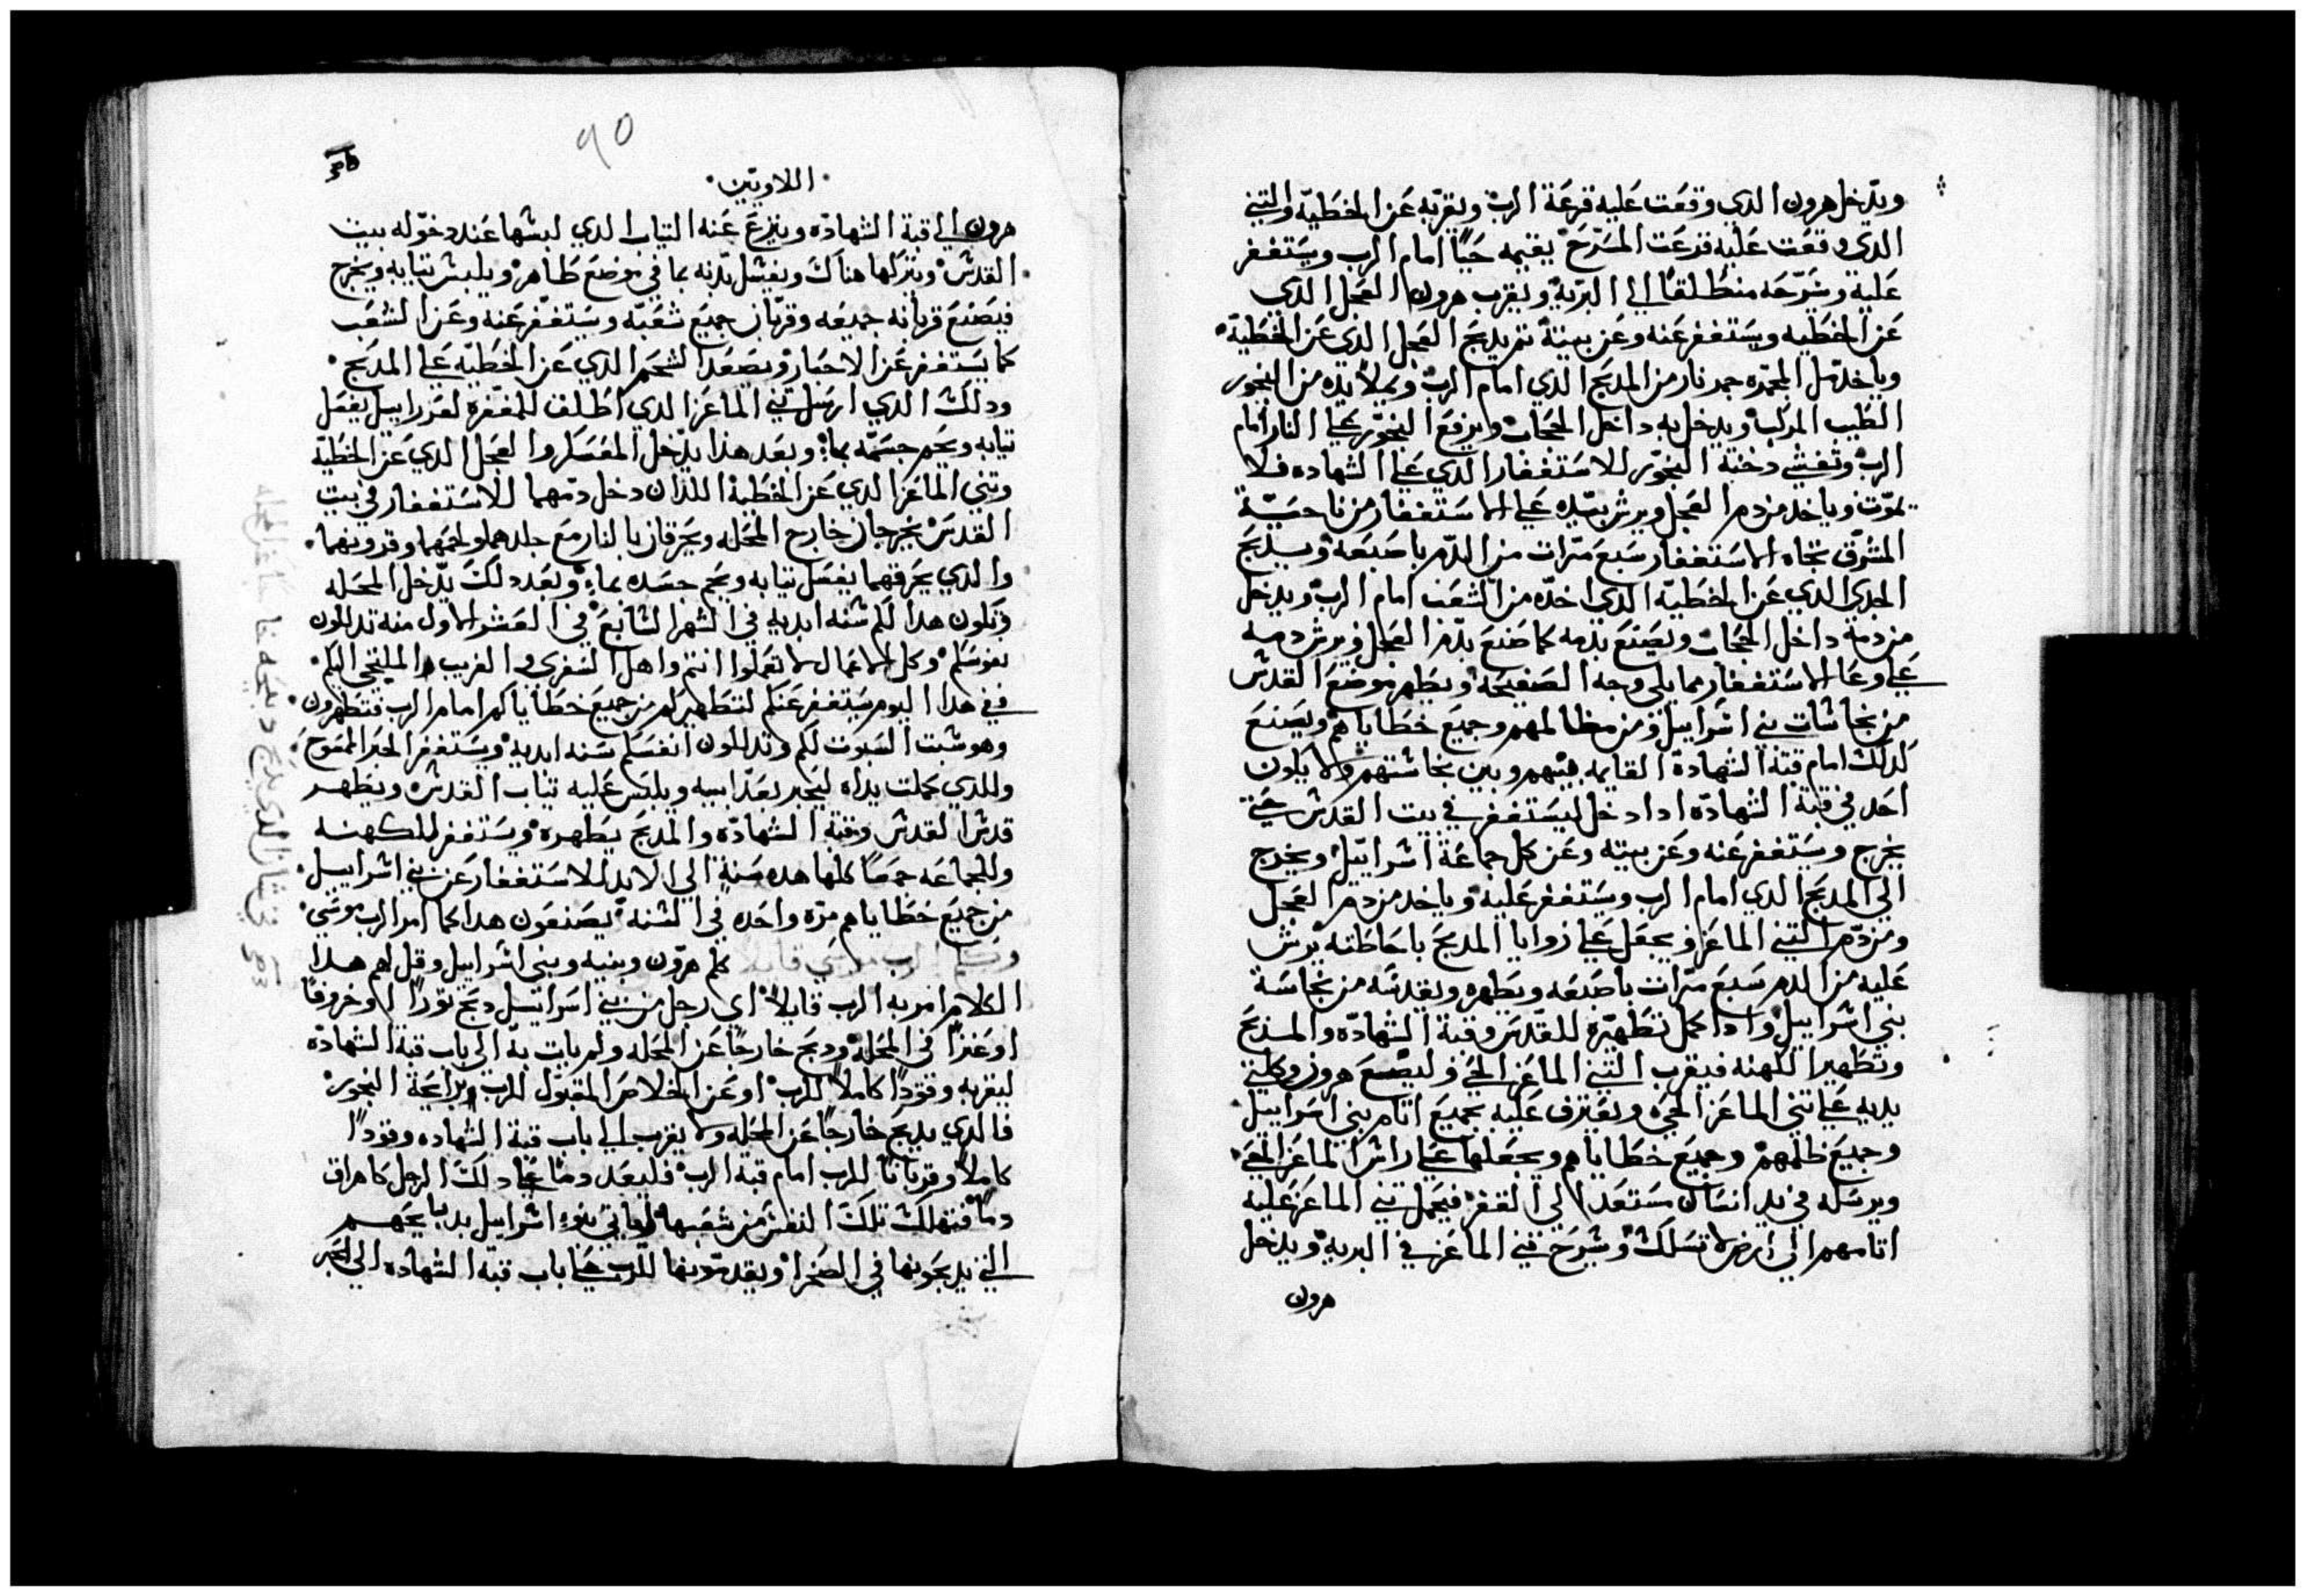 ويدخل هرون الدي وقعت عليه قرعة الرب ويقربه عن الخطية والتني
الدي وقعت عليه قرعت المسرح يقيمه حيا امام الرب ويستغفر
عليه ويسرحه منطلقا الي البرية ويقرب هرون العجل الدي
عن الخطيه ويستغفر عنه وعن بيته تم يدبح العجل الدي عن الخطية
وياخد مل المجمره جمر نار من المدبح الدي امام الرب ويملا يده من البخور
الطيب المركب ويدخل به داخل الحجاب ويرفع البخور علي النار امام
الرب وتغشي دخنة البخور للاستغفار الدي علي الشهاده فلا
يموت وياخد من دم العجل ويرش بيده علي الاستغفار من ناحية
المشرق تجاه الاستغفار سبع مرات من الدم باصبعه ويدبح
الجدي الدي عن الخطية الدي اخده من الشعب امام الرب ويدخل
من دمه داخل الحجاب ويصنع بدمه كما صنع بدم العجل ويرش دمه
علي وعا الاستغفار مما يلي وجه الصفيحه ويطهر موضع القدش
من نجاشات بني اشراييل ومن مظالمهم وجميع خطاياهم ويصنع
كدلك امام قبة الشهادة القايمه بينهم وبين نجاشتهم ولا يكون
احد في قبة الشهادة ادا دخل ليستغفر في بيت القدش حتي
يخرج ويستغفر عنه وعن بيته وعن كل جماعة اشراييل ويخرج
الي المدبح الدي امام الرب ويستغفر عليه وياخد من دم العجل
ومن دم التني الماعز ويجعل علي زوايا المدبح باحاطته يرش
عليه من الدم سبع مرات باصبعه ويطهره ويقدسه من نجاسة
بني اشراييل وادا كمل تطهيره للقدس وقبة الشهادة والمدبح
وتطهير الكهنه فيقرب التني الماعز الحي وليضع هرون كلتي
يديه علي تني الماعز الحي ويعترف عليه بجميع اتام بني اسراييل
وجميع ظلمهم وجميع خطاياهم ويجعلها علي راش الماعز الحي
ويرسله في يد انسان مستعد الي القفر فيحمل تني الماعز عليه
اتامهم الي ارض لا تسلك ويسرح تني الماعز في البريه ويدخل
هرون
٩٥
اللاويين
هرون الي قبة الشهاده وينزع عنه التياب الدي لبشها عند دخوله بيت
القدش ويتركها هناك ويغشل بدنه بما في موضع طاهر ويلبش تيابه ويخرج
فيصنع قربانه جميعه وقربان جميع شعبه ويستغفر عنه وعن الشعب
كما يستغفر عن الاحبار ويصعد الشحم الدي عن الخطيه علي المدبح
ودلك الدي ارسل تني الماعز الدي اطلق للمغفره لعزراييل يغسل
تيابه ويحم جسمه بما وبعد هذا يدخل المعسكر والعجل الدي عن الخطية
وتني الماعز الدي عن الخطية اللذان دخل دمهما للاستغفار في بيت
القدس يخرجان خارج المحله ويحرقان بالنار مع جلدهما ولحمهما وفرويهما
والدي يحرقهما يغسل تيابه ويحم جسده بماء وبعد دلك يدخل المحله
وتكون هدا لكم شنه ابديه في الشهر الشابع في العشر الاول منه تدللون
نفوسكم وكل الاعمال لا تعملوا انتم واهل السفري والغريب الملتجي اليكم
ففي هدا اليوم يستغفر عنكم لتطهيركم من جميع خطاياكم امام الرب فتطهرون
وهو شبت السبوت لكم وتدللون انفسكم سنه ابديه ويستغفر الحبر الممسوح
والدي كملت يداه ليحبر بعد ابيه ويلبس عليه تياب القدش ويطهر
قدش القدش وقبة الشهادة والمدبح يطهره ويستغفر للكهنه
وللجماعه جمعا كلها هده سنة الي الابد للاستغفار عن بني اشراييل
من جميع خطاياهم مرة واحده في الشنة يصنعون هدا كما امر الرب موسي
وكلم الرب موسي قايلا كلم هرون وبنيه وبني اشراييل وقل لهم هدا
الكلام امر به الرب قايلا اي رجل من بني اسراييل دبح تورا او خروفا
او عنزا في المحله ودبح خارجا عن المحله ولم يات به الي باب قبة الشهادة
ليقربه وقودا كاملا للرب او عن الخلاص المقبول للرب برايحة البخور
فالدي يدبح خارجا عن المحله ولا يقرب الي باب قبة الشهاده وقودا
كاملا وقربانا للرب امام قبة الرب فليعد دما علي دلك الرجل كاهراق
دما فتهلك تلك النفش من شعبها لياتي بنوا اشراييل بدبايحهم
التي يدبحونها في الصحرا ويقدمونها للرب علي باب قبة الشهاده الي الحبر